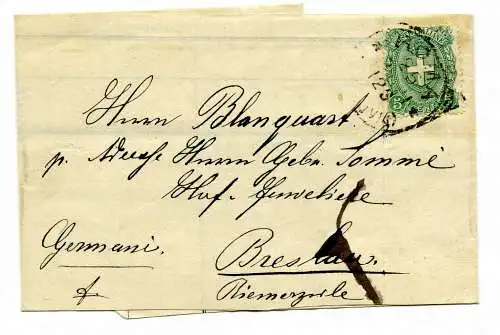 Herrn Blanquart
p. Adresse Herrn Gebr. Sommé
Hof-Juweliere
Germani.
Breslau.
Riemerzeile